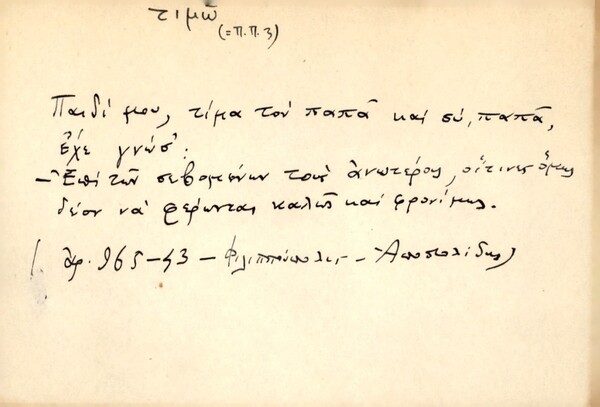 τιμῶ
(=Π.Π. 3)
Παιδί μου, τίμα τὸν παπᾶ καὶ σύ, παπᾶ,
ἔχε γνώσ':
– Ἐπὶ τῶν σεβομένων τοὺς ἀνωτέρους, οἵτινες ὅμως
δέον νὰ φέρωνται καλῶς καὶ φρονίμως.
(ἀρ. 965–43 – Φιλιππούπολις – Ἀποστολίδης)